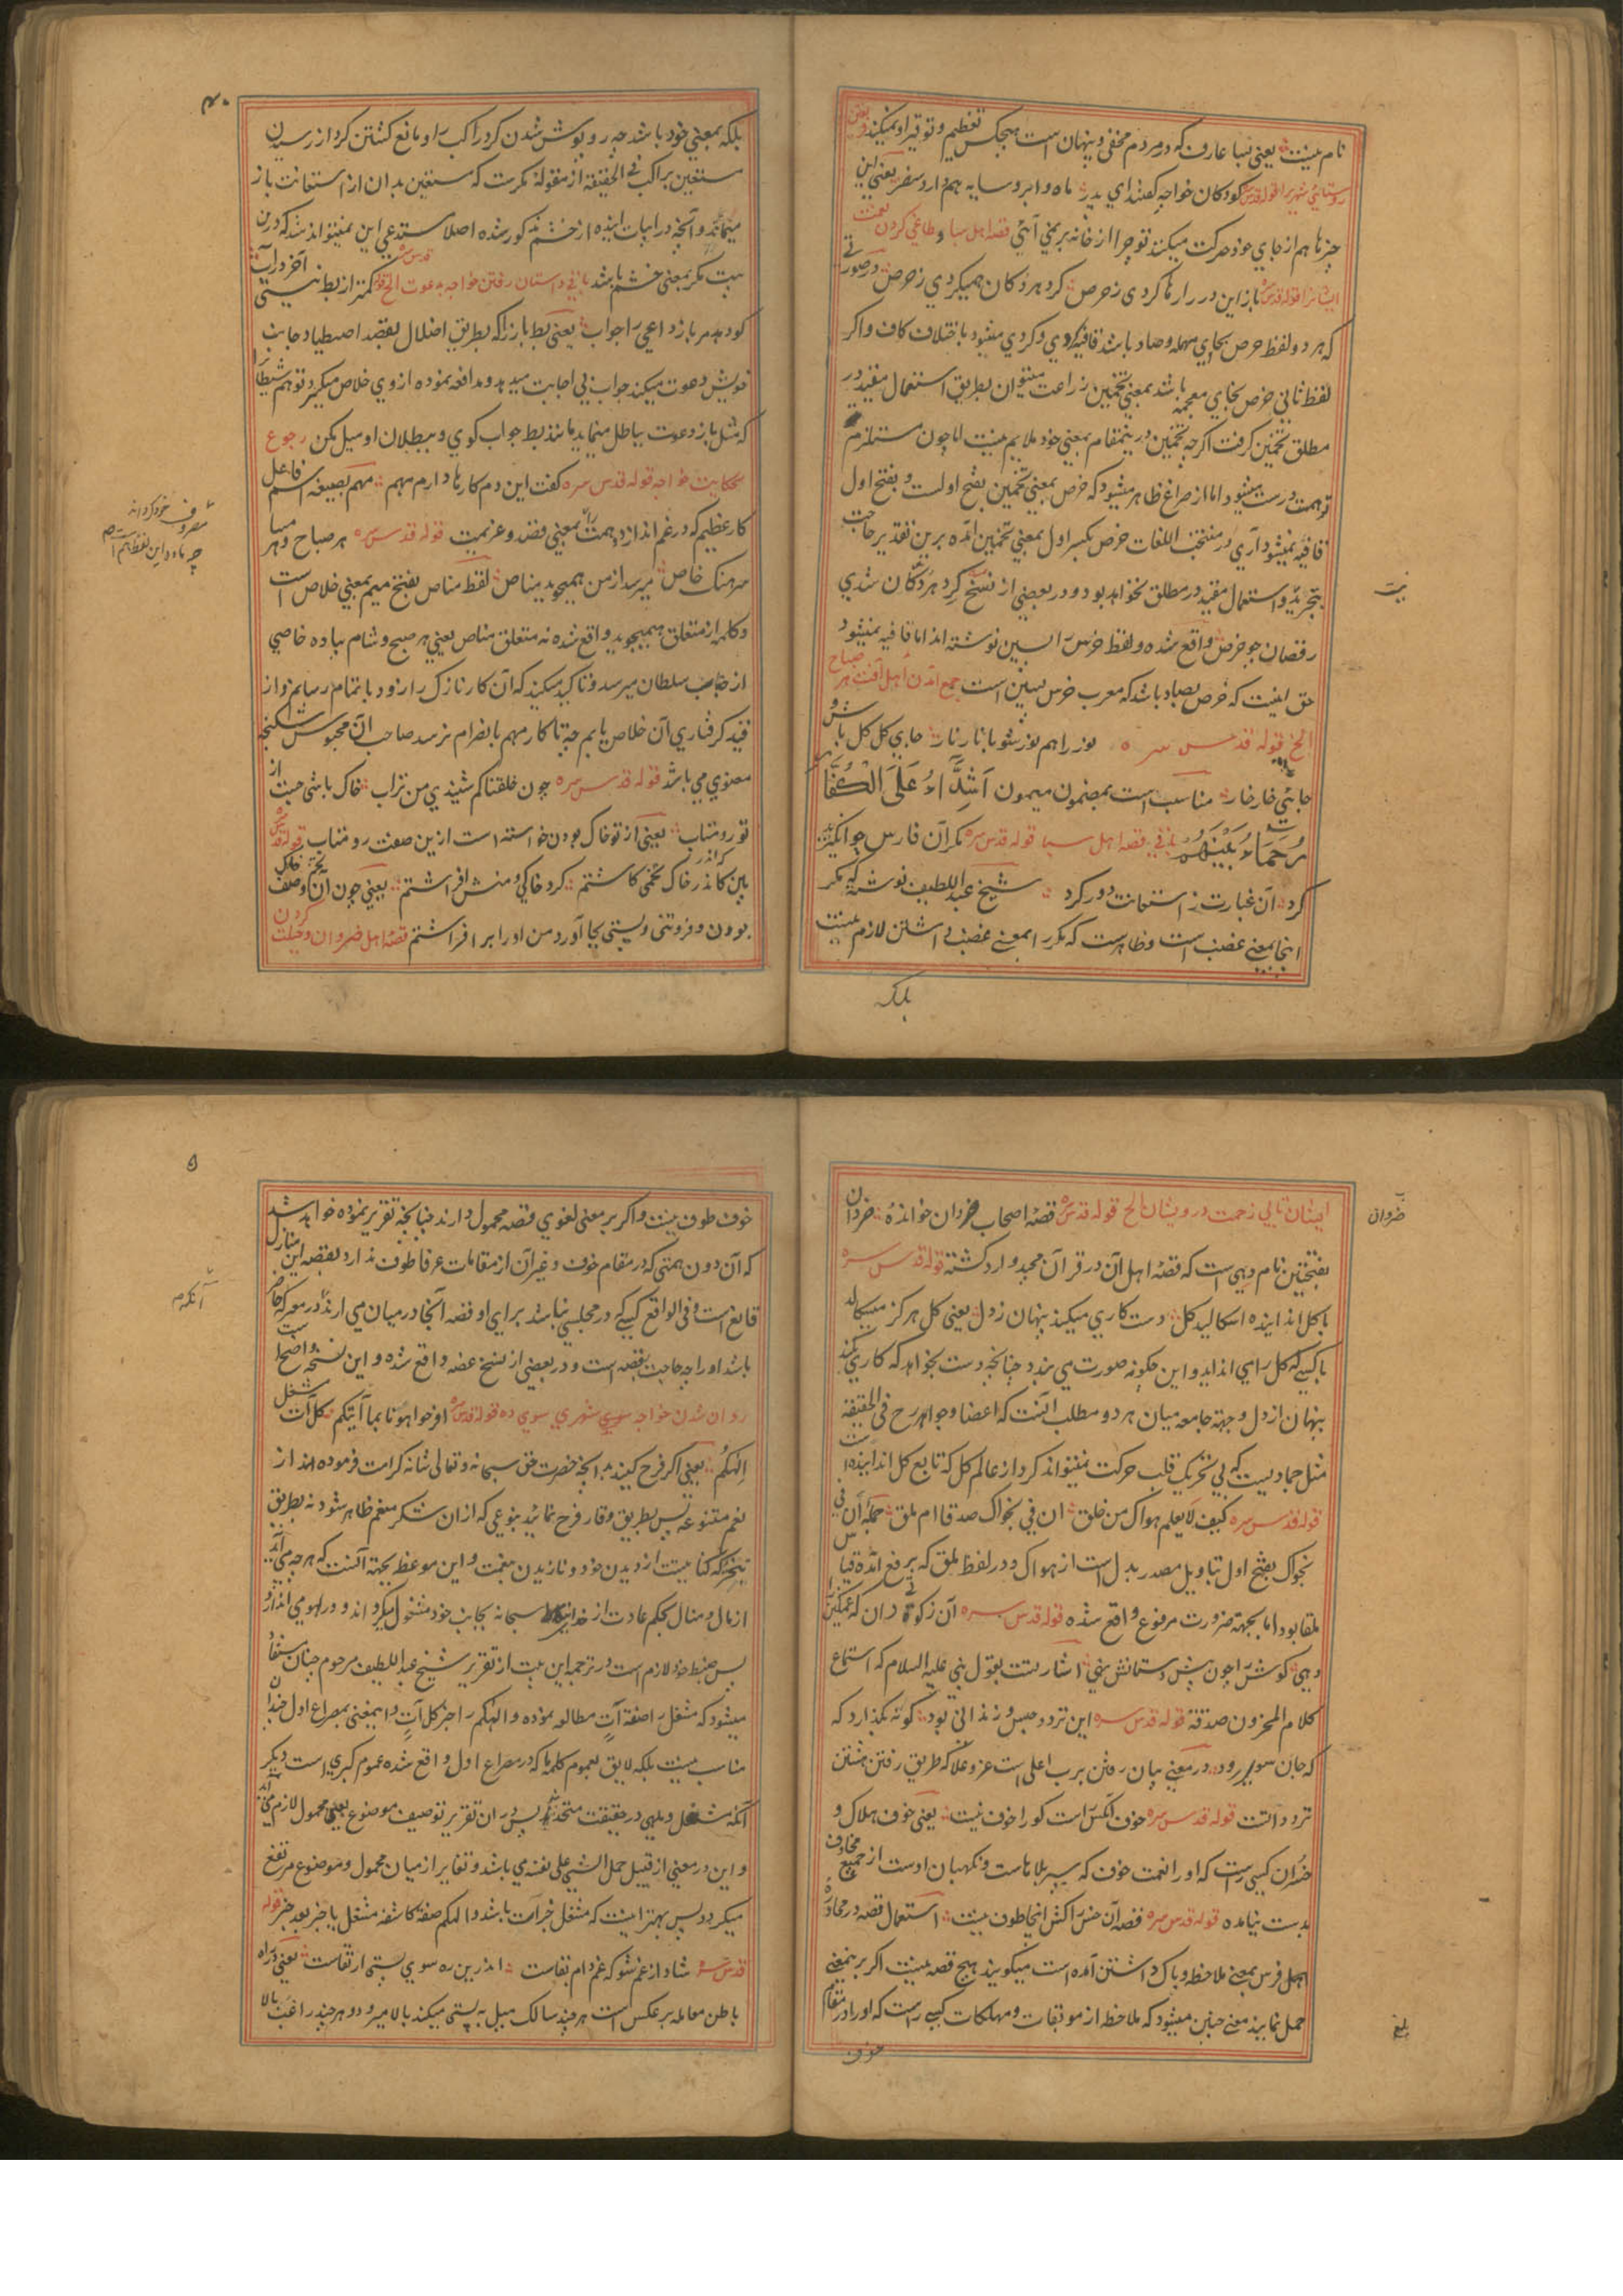 نام نیست یعنی بسا عارف که در مردم مخفی و پنهان است هیچکس تعظیم و توقیر او نمیکند رفتن
روستائی شهر را قوله قدس سره کودکان خواجه گفتند ای پدر ماه و ابر و سایه هم دارد سفر یعنی این
چیزها هم از جای خود حرکت میکنند تو چرا از خانه بر نمی آئی قصه اهل سبا و طاغی کردن نعمت
ایشانرا قوله قدس سره باز این در را رها کردی ز حرص گرد هر دکان همیگردی ز حرص در صورتی
که هر دو لفظ حرص بحای مهمله و صاد باشد قافیه کردی و گردی میشود باختلاف کاف و اگر
لفظ ثانی خرص بخای معجمه باشد بمعنی تخمین زراعت میتوان بطریق استعمال مقید در
مطلق تخمین گرفت اگرچه تخمین درینمقام بمعنی خود ملایم نیست اما چون مستلزم
توهمست درست میشود اما از صراح ظاهر میشود که خرص بمعنی تخمین بفتح اولست و بفتح اول
قافیه نمیشود آری در منتخب اللغات خرص بکسر اول بمعنی تخمین آمده برین تقدیر حاجت
بتجرید و استعمال مقید در مطلق نخواهد بود و در بعضی از نسخ گرد هر دکان شدی
رقصان چو خرص واقع شده و لفظ خرس را بسین نوشته اند اما قافیه نمیشود
حق اینست که خرص بصاد باشد که معرب خرس بسین است جمع آمدن اهل آفت هر صباح
الخ قوله قدس سره نور را هم نور شو با نار نار جای گل گل باش و
جائی خار خار مناسب است بمضمون میمون اَشِدَّاءُ عَلَی الْکُفَّا
رُحَمَاءُ بَیْنَهُم باقی قصه اهل سبا قوله قدس سره مکر آن فارس چو انگیزید
گرد آن غبارت ز استعانت دور کرد شیخ عبد اللطیف نوشته که مکر
اینجا بمعنی غضب است و ظاهر است که مکر را بمعنی غضب داشتن لازم نیست
بلکه
نیست
۴۰
بلکه بمعنی خود باشد چه روپوش شدن گرد راکب را و مانع گشتن گرد از رسیدن
مستعین براکب فی الحقیقة از مقوله مکرست که مستعین بدان از استعانت باز
میماند و آنچه در ابیات آینده از خشم مذکور شده اصلا مستدعی این نمیتواند شد که درین
بیت مکر بمعنی خشم باشد باقی داستان رفتن خواجه بدعوت الخ قوله قدس سره کمتر از بط نیستی آخر در آب
کو دهد مر باز داعی را جواب یعنی بط باز را که بطریق اضلال بقصد اصطیاد جانب
خویش دعوت میکند جواب بی اجابت میدهد و مدافعه نموده از وی خلاص میگردد تو هم شیطان را
که مثل باز دعوت بباطل مینماید مانند بط جواب گوی و ببطلان او میل مکن رجوع
بحکایت خواجه قوله قدس سره گفت این دم کارها دارم مهم مهم بصیغه اسم فاعل
کار عظیم که در غم اندازد و همت را بمعنی قصد و عزیمت قوله قدس سره هر صباح و هر مسا
سرهنگ خاص میرسد از من همیجوید مناص لفظ مناص بفتح میم بمعنی خلاص است
و کلمه از متعلق همیجوید واقع شده نه متعلق مناص یعنی هر صبح و شام پیاده خاصی
از جانب سلطان میرسد و تاکید میکند که آن کار نازک را زود باتمام رسانم و از
قید گرفتاری آن خلاص یابم چه تا کار مهم بانصرام نرسد صاحب آن محبوس شکنجه
معنوی می باشد قوله قدس سره چون خلقناکم شنیدی من تراب خاک باشی جست از
تو رو متاب یعنی از تو خاک بودن خواسته است ازین صفت رو متاب قوله قدس سره
بین که اندر خاک تخمی کاشتم گرد خاکی و منش افراشتم یعنی چون آن تخم وصف خاکی
بودن و فروتنی و پستی بجا آورد من او را بر افراشتم قصه اهل ضروان و حیلت کردن
مصروف خود کردانه
چه ماده این لفظ هم
ایشان تا بی زحمت درویشان الخ قوله قدس سره قصه اصحاب ضروان خوانده ضروان
بفتحتین نام دهی است که قصه اهل آن در قرآن مجید وارد گشته قوله قدس سره
با گل انداینده اسگالید گل دست کاری میکند پنهان ز دل یعنی گل هرگز میسگالد
با کسی که گل را می انداید و این چگونه صورت می بندد چنانچه دست نخواهد که کاری کند
پنهان از دل و جهة جامعه میان هر دو مطلب آنست که اعضا و جوارح فی الحقیقة
مثل جمادیست که بی تحریک قلب حرکت نمیتواند کرد از عالم گل که تابع گل انداینده است
قوله قدس سره کیف لا یعلم هواک من خلق ان فی نجواک صدقا ام ملق جمله ان فی
نجواک بفتح اول بتاویل مصدر بدل است از هواک و در لفظ ملق که برفع آمده قیاس
ملقا بود اما بجهة ضرورت مرفوع واقع شده قوله قدس سره آن زکوتی دان که غمگین را
دهی گوش را چون پیش دستانش نهی اشارتست بقول نبی علیه السلام که استماع
کلام المحزون صدقة قوله قدس سره این تردد حبس و زندانی بود کو نه بگذارد که
که جان سویی رود در معنی بیان رفتن برب اعلی است عز و علا که طریق رفتن هشتن
تردد است قوله قدس سره خوف آنکس راست کو را خوف نیست یعنی خوف هلاک و
خسران کسی راست که او را نعمت خوف که سپر بلاهاست و نگهبان اوست از جمیع مخاوف
بدست نیامده قوله قدس سره غصه آن کس را کش اینجا طوف نیست استعمال قصه در محاوره
اهل فرس بمعنی ملاحظه و باک داشتن آمده است میگویند هیچ قصه نیست اگر برینمعنی
حمل نمایند معنی چنین میشود که ملاحظه از موبقات و مهلکات کسی راست که او را در مقام
خوف
ضروان
بلغ
۵
خوف طوف نیست و اگر بر معنی لغوی قصه محمول دارند چنانچه تقریر نموده خواهد شد
که آن دون همتی که در مقام خوف و غیر آن از مقامات عرفا طوف ندارد بقصه این منازل
قانع است و فی الواقع کسی که در مجلسی نباشد برای او قصه آنجا در میان می آرند و در معرکه حاضر
باشد او را چه حاجت بقصه است و در بعضی از نسخ غصه واقع شده و این نسخه واضح است
روان شدن خواجه سوی شهری سوی ده قوله قدس سره افرحوا هونا بما آتیکم کل آت مشغل
الهکم یعنی اگر فرح کنید بر آنچه حضرت حق سبحانه و تعالی شانه کرامت فرموده اند از
نعم متنوعه پس بطریق وقار فرح نمائید بنوعی که ازان شکر منعم ظاهر شود نه بطریق
تبختر که کنایتست از دیدن خود و نازیدن بنعمت و این موعظ بجهة آنست که هر چه می آید
از مال و منال بحکم عادت از خدا سبحانه بجانب خود مشغول میگرداند و در لهو می اندازد
پس ضبط خود لازم است در ترجمه این بیت از تقریر شیخ عبد اللطیف مرحوم چنان مستفاد
میشود که مشغل را صفة آت مطالعه نموده و الهکم را خبر کل آت و اینمعنی بمصراع اول چندان
مناسب نیست بلکه لایق بعموم کلمه ما که در مصراع اول واقع شده عموم کبری است دیگر
آنکه مشغل و ملهی در حقیقت متحد اند پس دران تقریر توصیف موضوع بعین محمول لازم می آید
و این در معنی از قبیل حمل الشیء علی نفسه می باشد و تغایر از میان محمول و موضوع مرتفع
میگردد پس بهتر اینست که مشغل خبر آت باشد و الهکم صفة کاشفه مشغل یا خبر بعد خبر قوله
قدس سره شاد از غم شو که غم دام بقاست اندرین ره سوی پستی ارتقاست یعنی در راه
باطن معامله بر عکس است هر چند سالک میل به پستی میکند بالا میرود و هر چند راغب بالا
آنکه